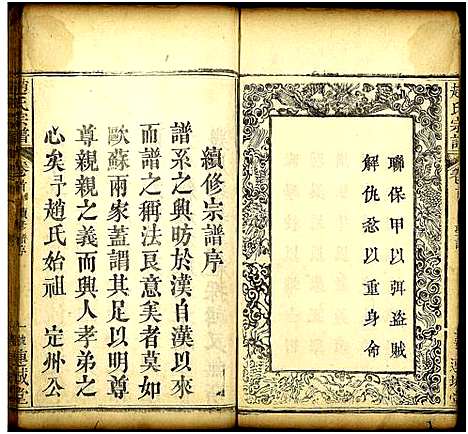 聯保甲以弭盜賊
解仇忿以重身命
續修宗譜序
譜系之興昉於漢自漢以來
而譜之稱法良意美者莫如
歐蘇兩家蓋謂其足以明尊
尊親親之義而興人孝弟之
心矣予趙氏始祖 定州公
趙氏宗譜
卷首
趙氏宗譜